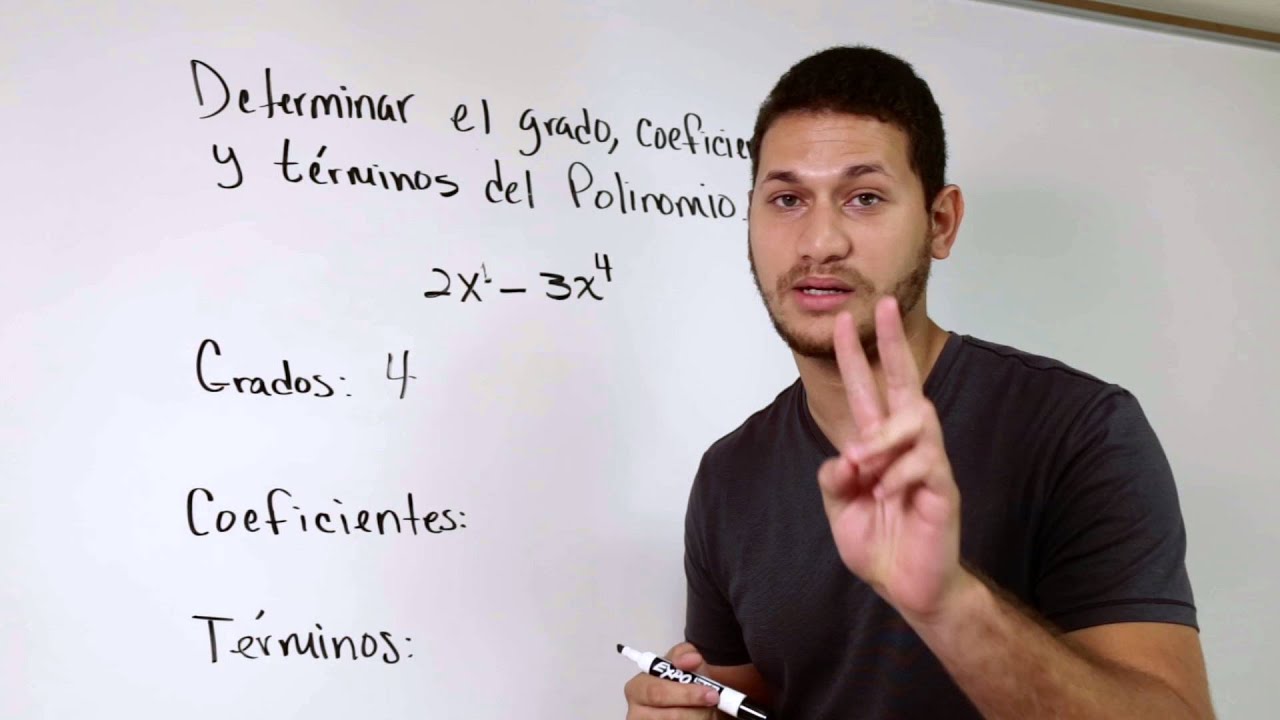 Determinar el grado, coeficien
y términos del Polinomio.
2x¹ - 3x⁴
Grados: 4
Coeficientes:
Términos:
EXPO